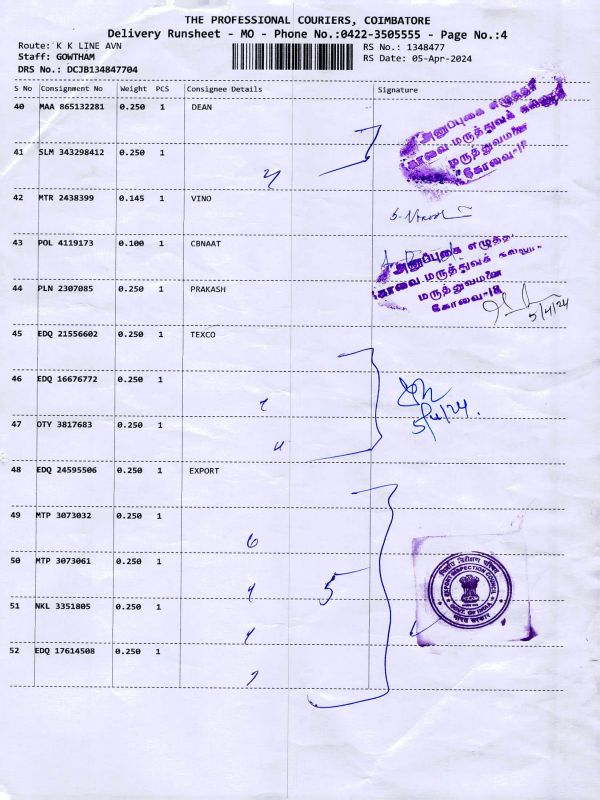 THE PROFESSIONAL COURIERS, COIMBATORE
Delivery Runsheet - MO - Phone No.:0422-3505555 - Page No.:4
Route: K K LINE AVN RS No.: 1348477
Staff: GOWTHAM RS Date: 05-Apr-2024
DRS No.: DCJB134847704
S No Consignment No Weight PCS Consignee Details Signature
40 MAA 865132281 0.250 1 DEAN
அனுப்புகை எழுத்தர்
கோவை மருத்துவக் கல்லூரி
மருத்துவமனை
கோவை-18
41 SLM 343298412 0.250 1
42 MTR 2438399 0.145 1 VINO
43 POL 4119173 0.100 1 CBNAAT
அனுப்புகை எழுத்தர்
கோவை மருத்துவக் கல்லூரி
மருத்துவமனை
கோவை-18
44 PLN 2307085 0.250 1 PRAKASH
5/4/24
45 EDQ 21556602 0.250 1 TEXCO
46 EDQ 16676772 0.250 1
5/4/24.
47 OTY 3817683 0.250 1
48 EDQ 24595506 0.250 1 EXPORT
49 MTP 3073032 0.250 1
6
50 MTP 3073061 0.250 1
5
निर्यात निरीक्षण परिषद
EXPORT INSPECTION COUNCIL
GOVT. OF INDIA
भारत सरकार
51 NKL 3351805 0.250 1
52 EDQ 17614508 0.250 1